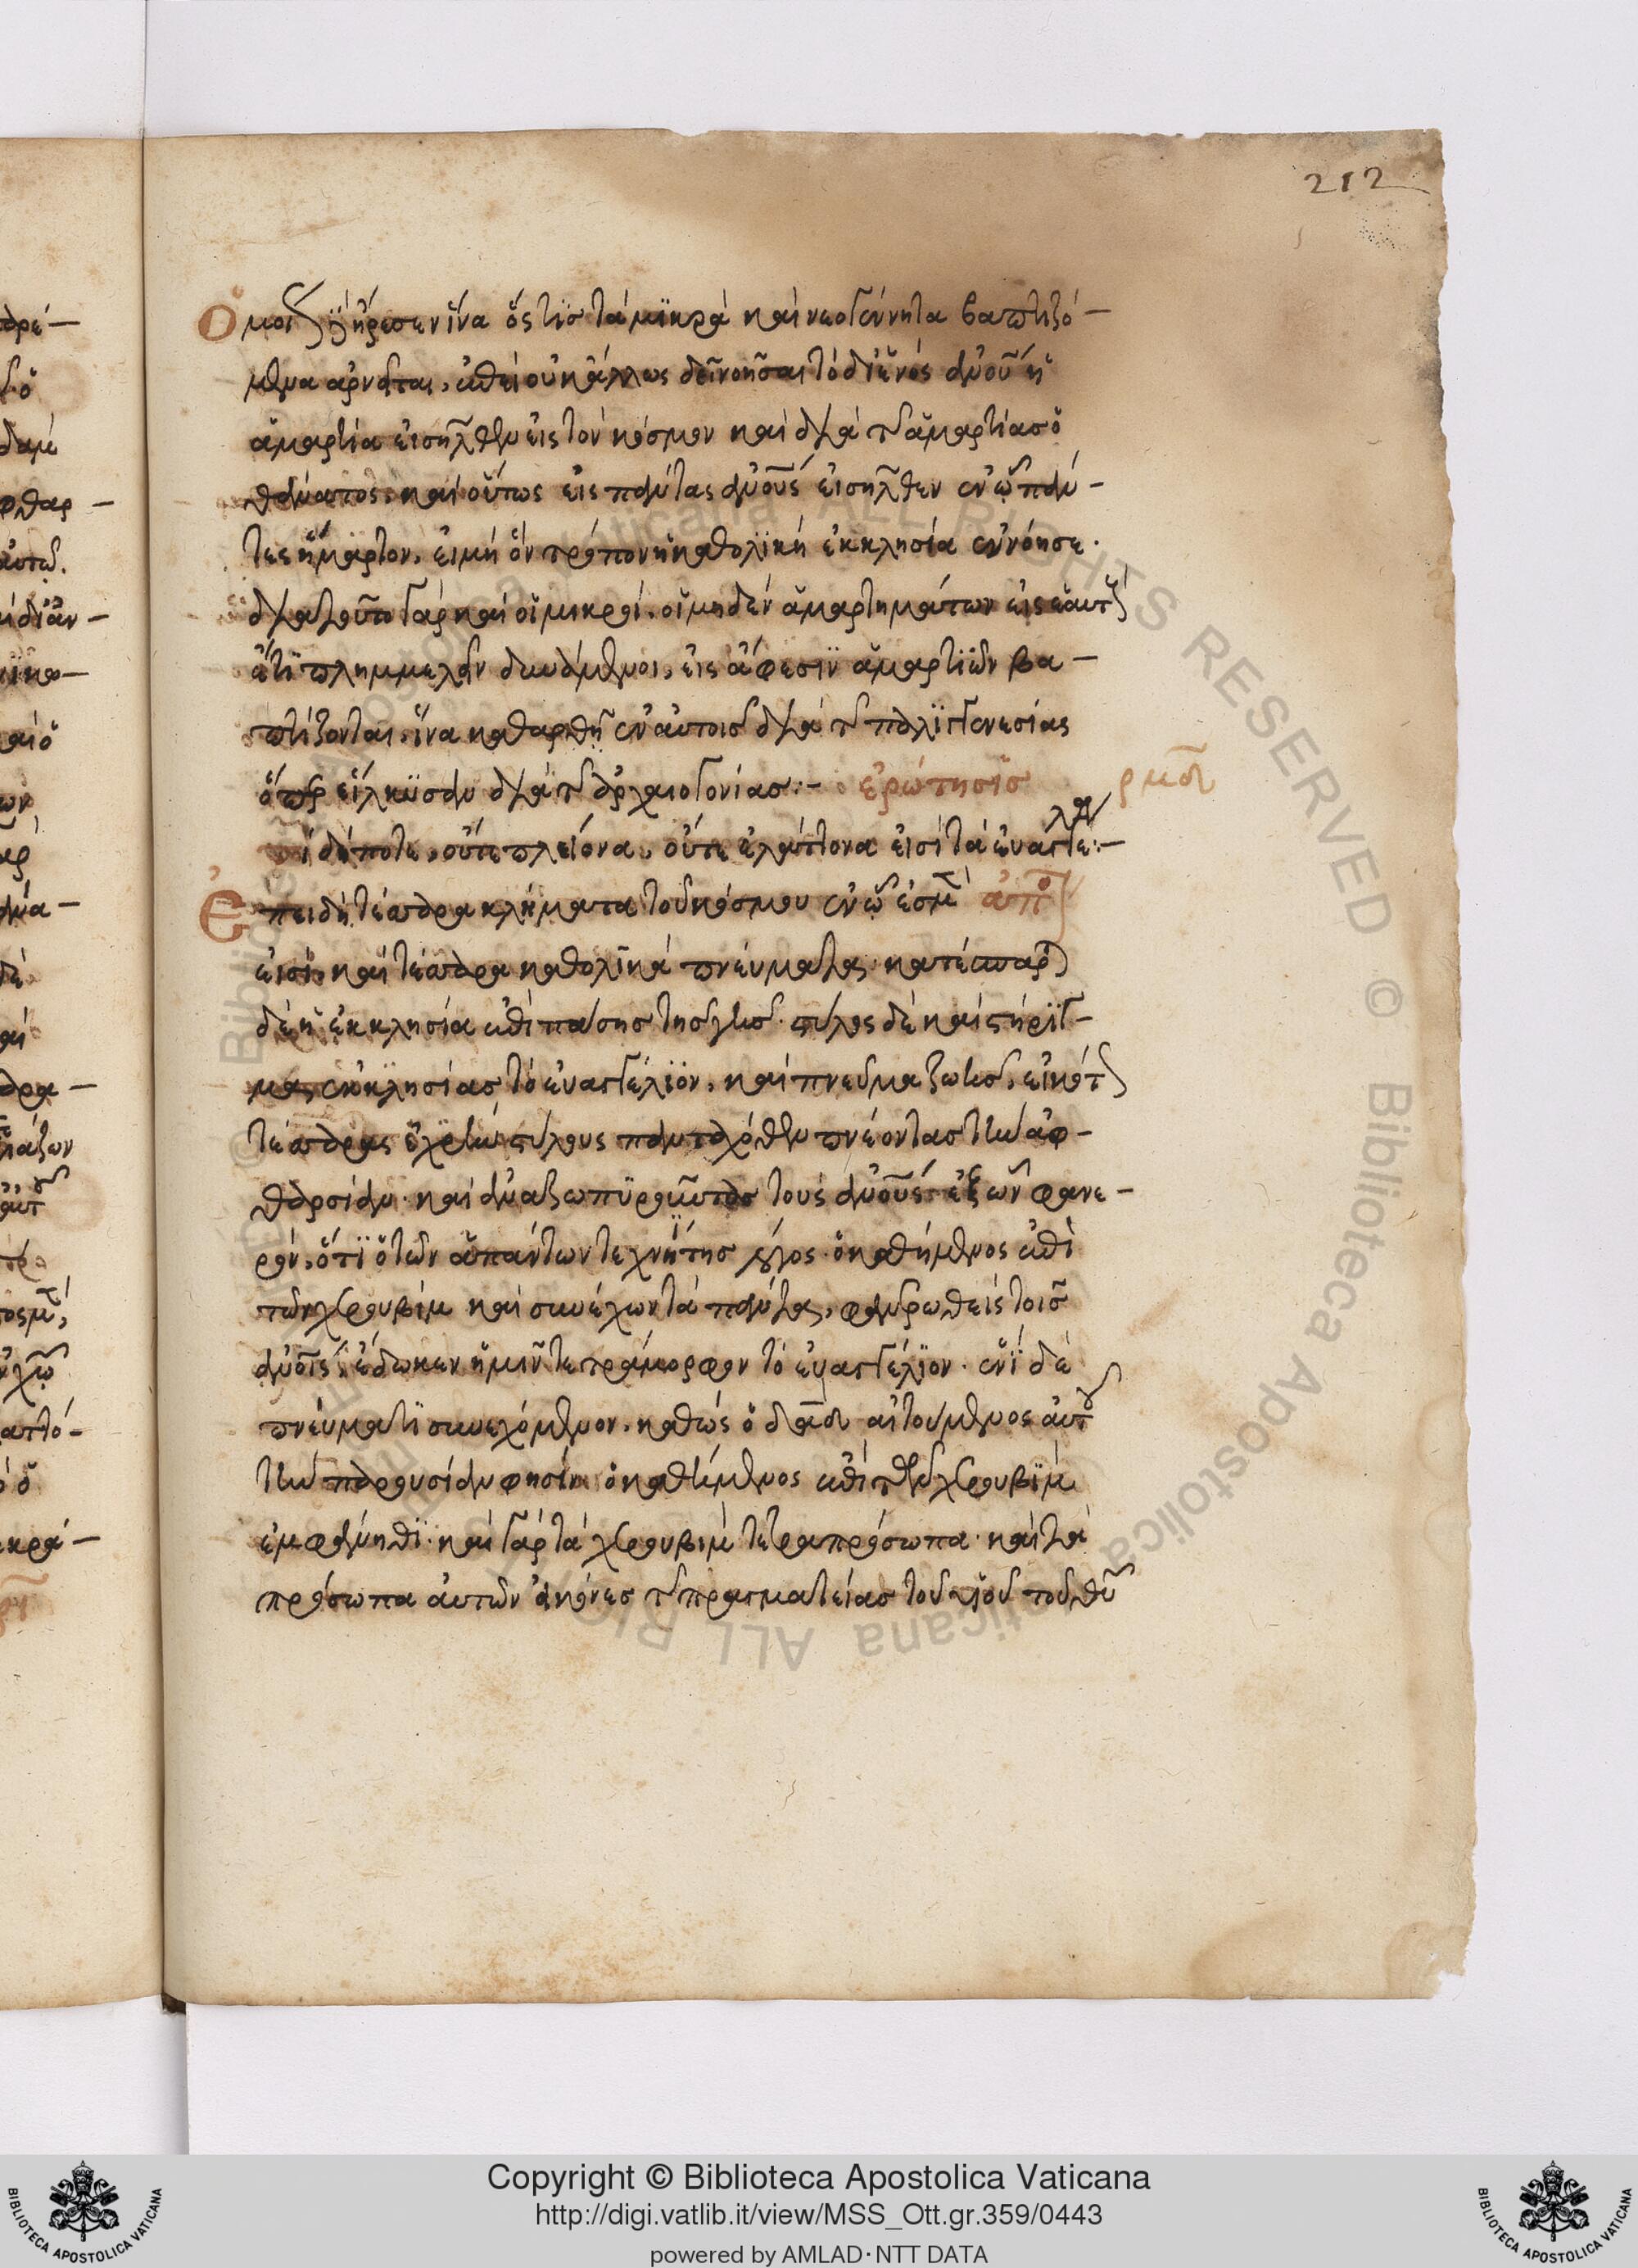 212
Ὁμοί(ως) ἤρεσεν ἵνα ὅς τις τὰ μικρὰ καὶ νεογέννητα βαπτιζό-
μενα ἀρνεῖται. ἐπεὶ οὐκ ἄλλως δεῖ νοῆσαι τὸ δι ἑνὸς ἀνου ἡ
ἁμαρτία εἰσῆλθεν εἰς τὸν κόσμον καὶ διὰ τῆς ἁμαρτίας ὁ
θάνατος. καὶ οὕτως εἰς πάντας ἀνους εἰσῆλθεν ἐν ᾧ πάν-
τες ἥμαρτον. εἰ μὴ ὃν τρόπον ἡ καθολικὴ ἐκκλησία ἐνόησε.
διὰ τοῦτο γὰρ καὶ οἱ μικροὶ. οἱ μηδὲν ἁμαρτημάτων εἰς ἑαυτ
ἔτι πλημμελεῖν δυνάμενοι, εἰς ἄφεσιν ἁμαρτιῶν βα-
πτίζονται. ἵνα καθαρθῇ ἐν αὐτοῖς διὰ τῆς παλιγγενεσίας
ὅπερ εἵλκυσαν διὰ τῆς ἀρχαιογονίας:- ἐρώτησις ρμδ
ί δήποτε, οὔτε πλείονα, οὔτε ἐλάττονα εἰσὶ τὰ εὐαγγέ:- λια
Ἐπειδὴ τέσσαρα κλήματα τοῦ κόσμου ἐν ᾧ ἐσμὲ ἀπό
εἰσὶ. καὶ τέσσαρα καθολικὰ πνεύματα. κατέσπαρ
δὲ ἡ ἐκκλησία ἐπὶ πάσης τῆς γῆς. στύλος δὲ καὶ στήριγ-
μα, ἐκκλησίας τὸ εὐαγγέλιον. καὶ πνεῦμα ζωῆς, εἰκότ
τέσσαρας ἔχει στύλους πανταχόθεν πνέοντας τὴν ἀφ-
θαρσίαν. καὶ ἀναζωπυροῦντας τοὺς ἀνους. ἐξ ὧν φανε-
ρὸν, ὅτι ὁ τῶν ἁπάντων τεχνήτης λόγος. ὁ καθήμενος ἐπὶ
τῶν χερουβὶμ καὶ συνέχων τὰ πάντα, φανερωθεὶς τοῖς
ἀνοις. ἔδωκεν ἡμῖν τετράμορφον τὸ εὐαγγέλιον. ἑνὶ δὲ
πνεύματι συνεχόμενον. καθὼς ὁ δαδ αἰτούμενος αὐτου
τὴν παρουσίαν φησίν. ὁ καθήμενος ἐπὶ τῶν χερουβὶμ
ἐμφάνηθι. καὶ γὰρ τὰ χερουβὶμ τετραπρόσωπα. καὶ τὰ
πρόσωπα αὐτῶν εἰκόνες τῆς πραγματείας τοῦ υἱοῦ τοῦ θυ
Copyright © Biblioteca Apostolica Vaticana
http://digi.vatlib.it/view/MSS_Ott.gr.359/0443
powered by AMLAD·NTT DATA